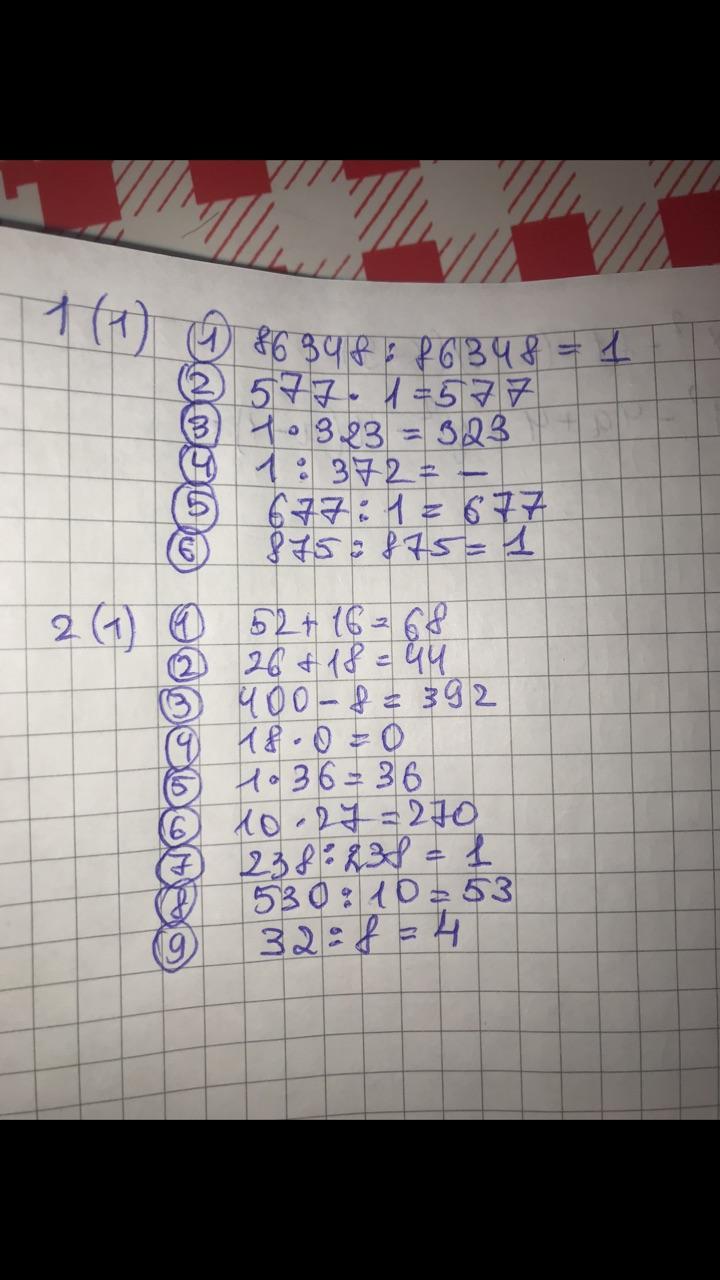 1 (1) ① 86348 : 86348 = 1
② 577 · 1 = 577
③ 1 · 323 = 323
④ 1 : 372 = –
⑤ 677 : 1 = 677
⑥ 875 : 875 = 1
2 (1) ① 52 + 16 = 68
② 26 + 18 = 44
③ 400 – 8 = 392
④ 18 · 0 = 0
⑤ 1 · 36 = 36
⑥ 10 · 27 = 270
⑦ 238 : 238 = 1
⑧ 530 : 10 = 53
⑨ 32 : 8 = 4